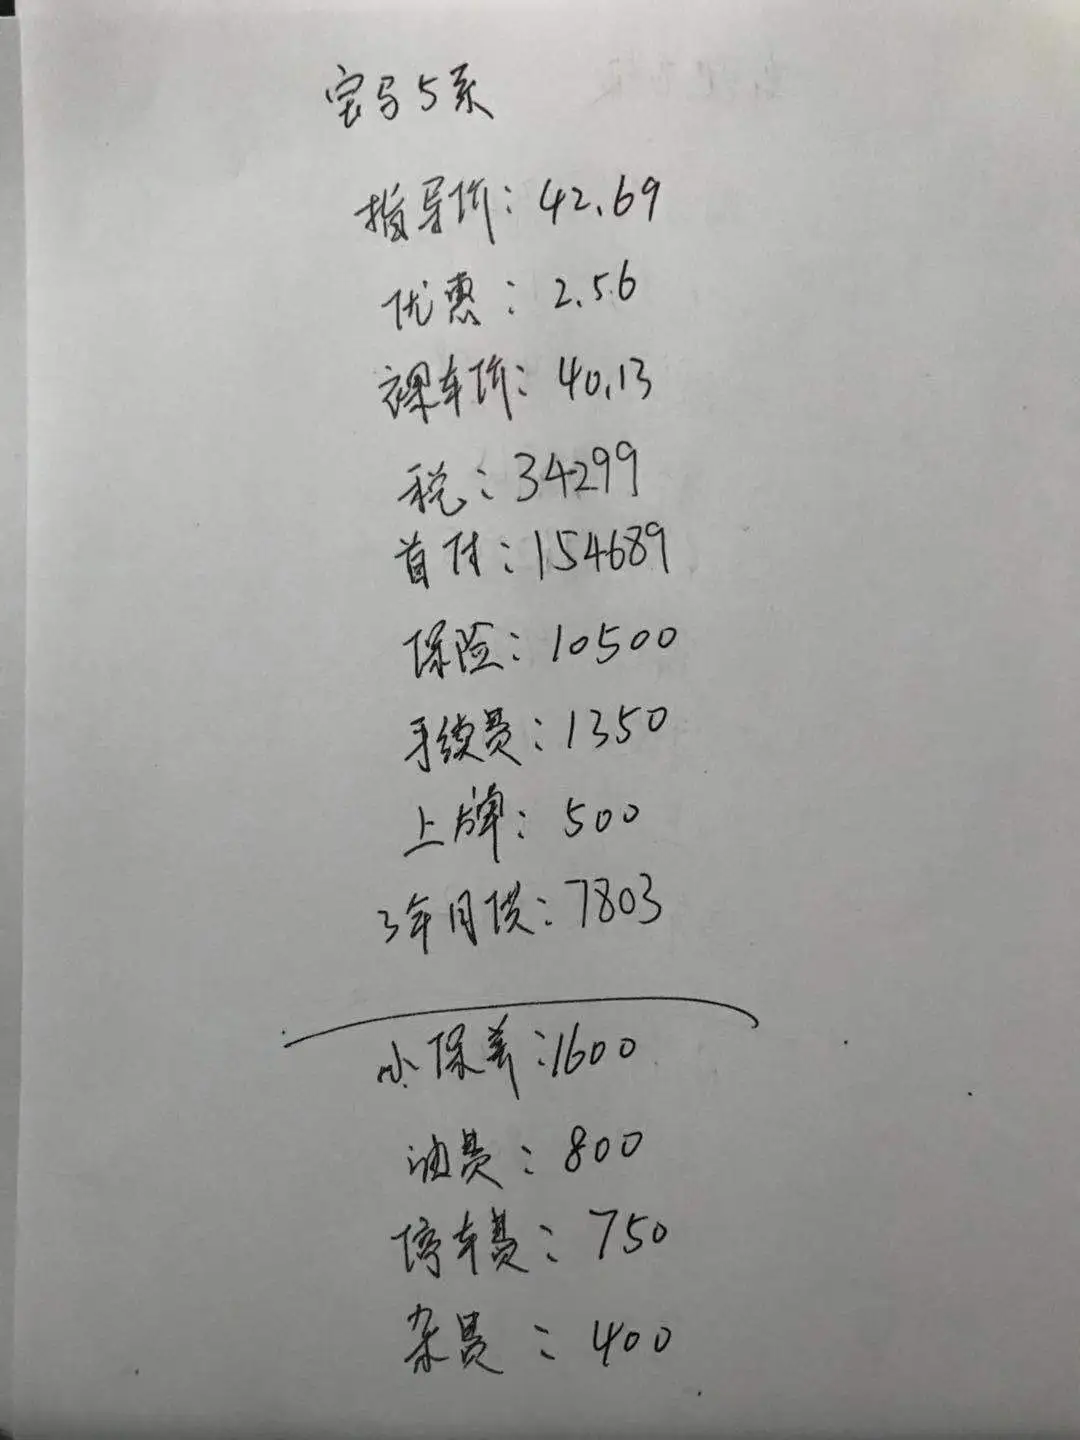 宝马5系
指导价：42.69
优惠：2.56
裸车价：40.13
税：34299
首付：154689
保险：10500
手续费：1350
上牌：500
3年月供：7803
小保养：1600
油费：800
停车费：750
杂费：400